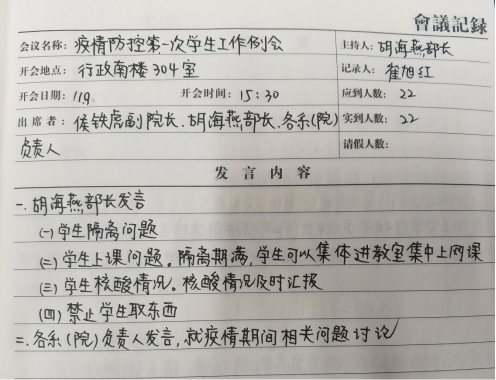 會議記録
会议名称：疫情防控第一次学生工作例会 主持人：胡海燕部长
开会地点：行政南楼304室 记录人：崔旭红
开会日期：119 开会时间：15:30 应到人数：22
出席者：侯铁虎副院长、胡海燕部长、各系(院) 实到人数：22
负责人 请假人数：
发言内容
一.胡海燕部长发言
(一)学生隔离问题
(二)学生上课问题。隔离期满,学生可以集体进教室集中上网课
(三)学生核酸情况。核酸情况及时汇报
(四)禁止学生取东西
二.各系(院)负责人发言,就疫情期间相关问题讨论